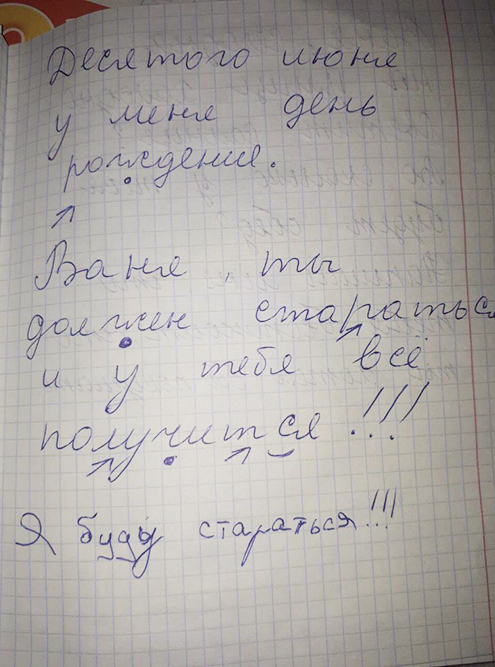 Десятого июня
у меня день
рождения.
Ваня, ты
должен стараться
и у тебя всё
получится!!!
Я буду стараться!!!